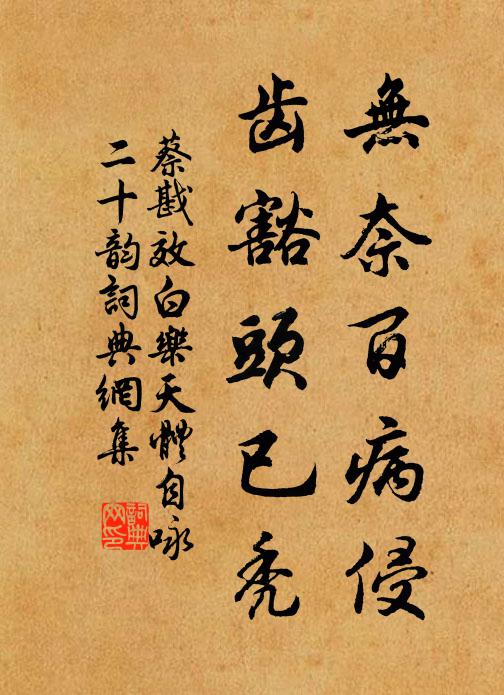 無奈百病侵
齿豁頭已秃
蔡戡效白樂天體自咏
二十韵詞典網集
詞典
网印